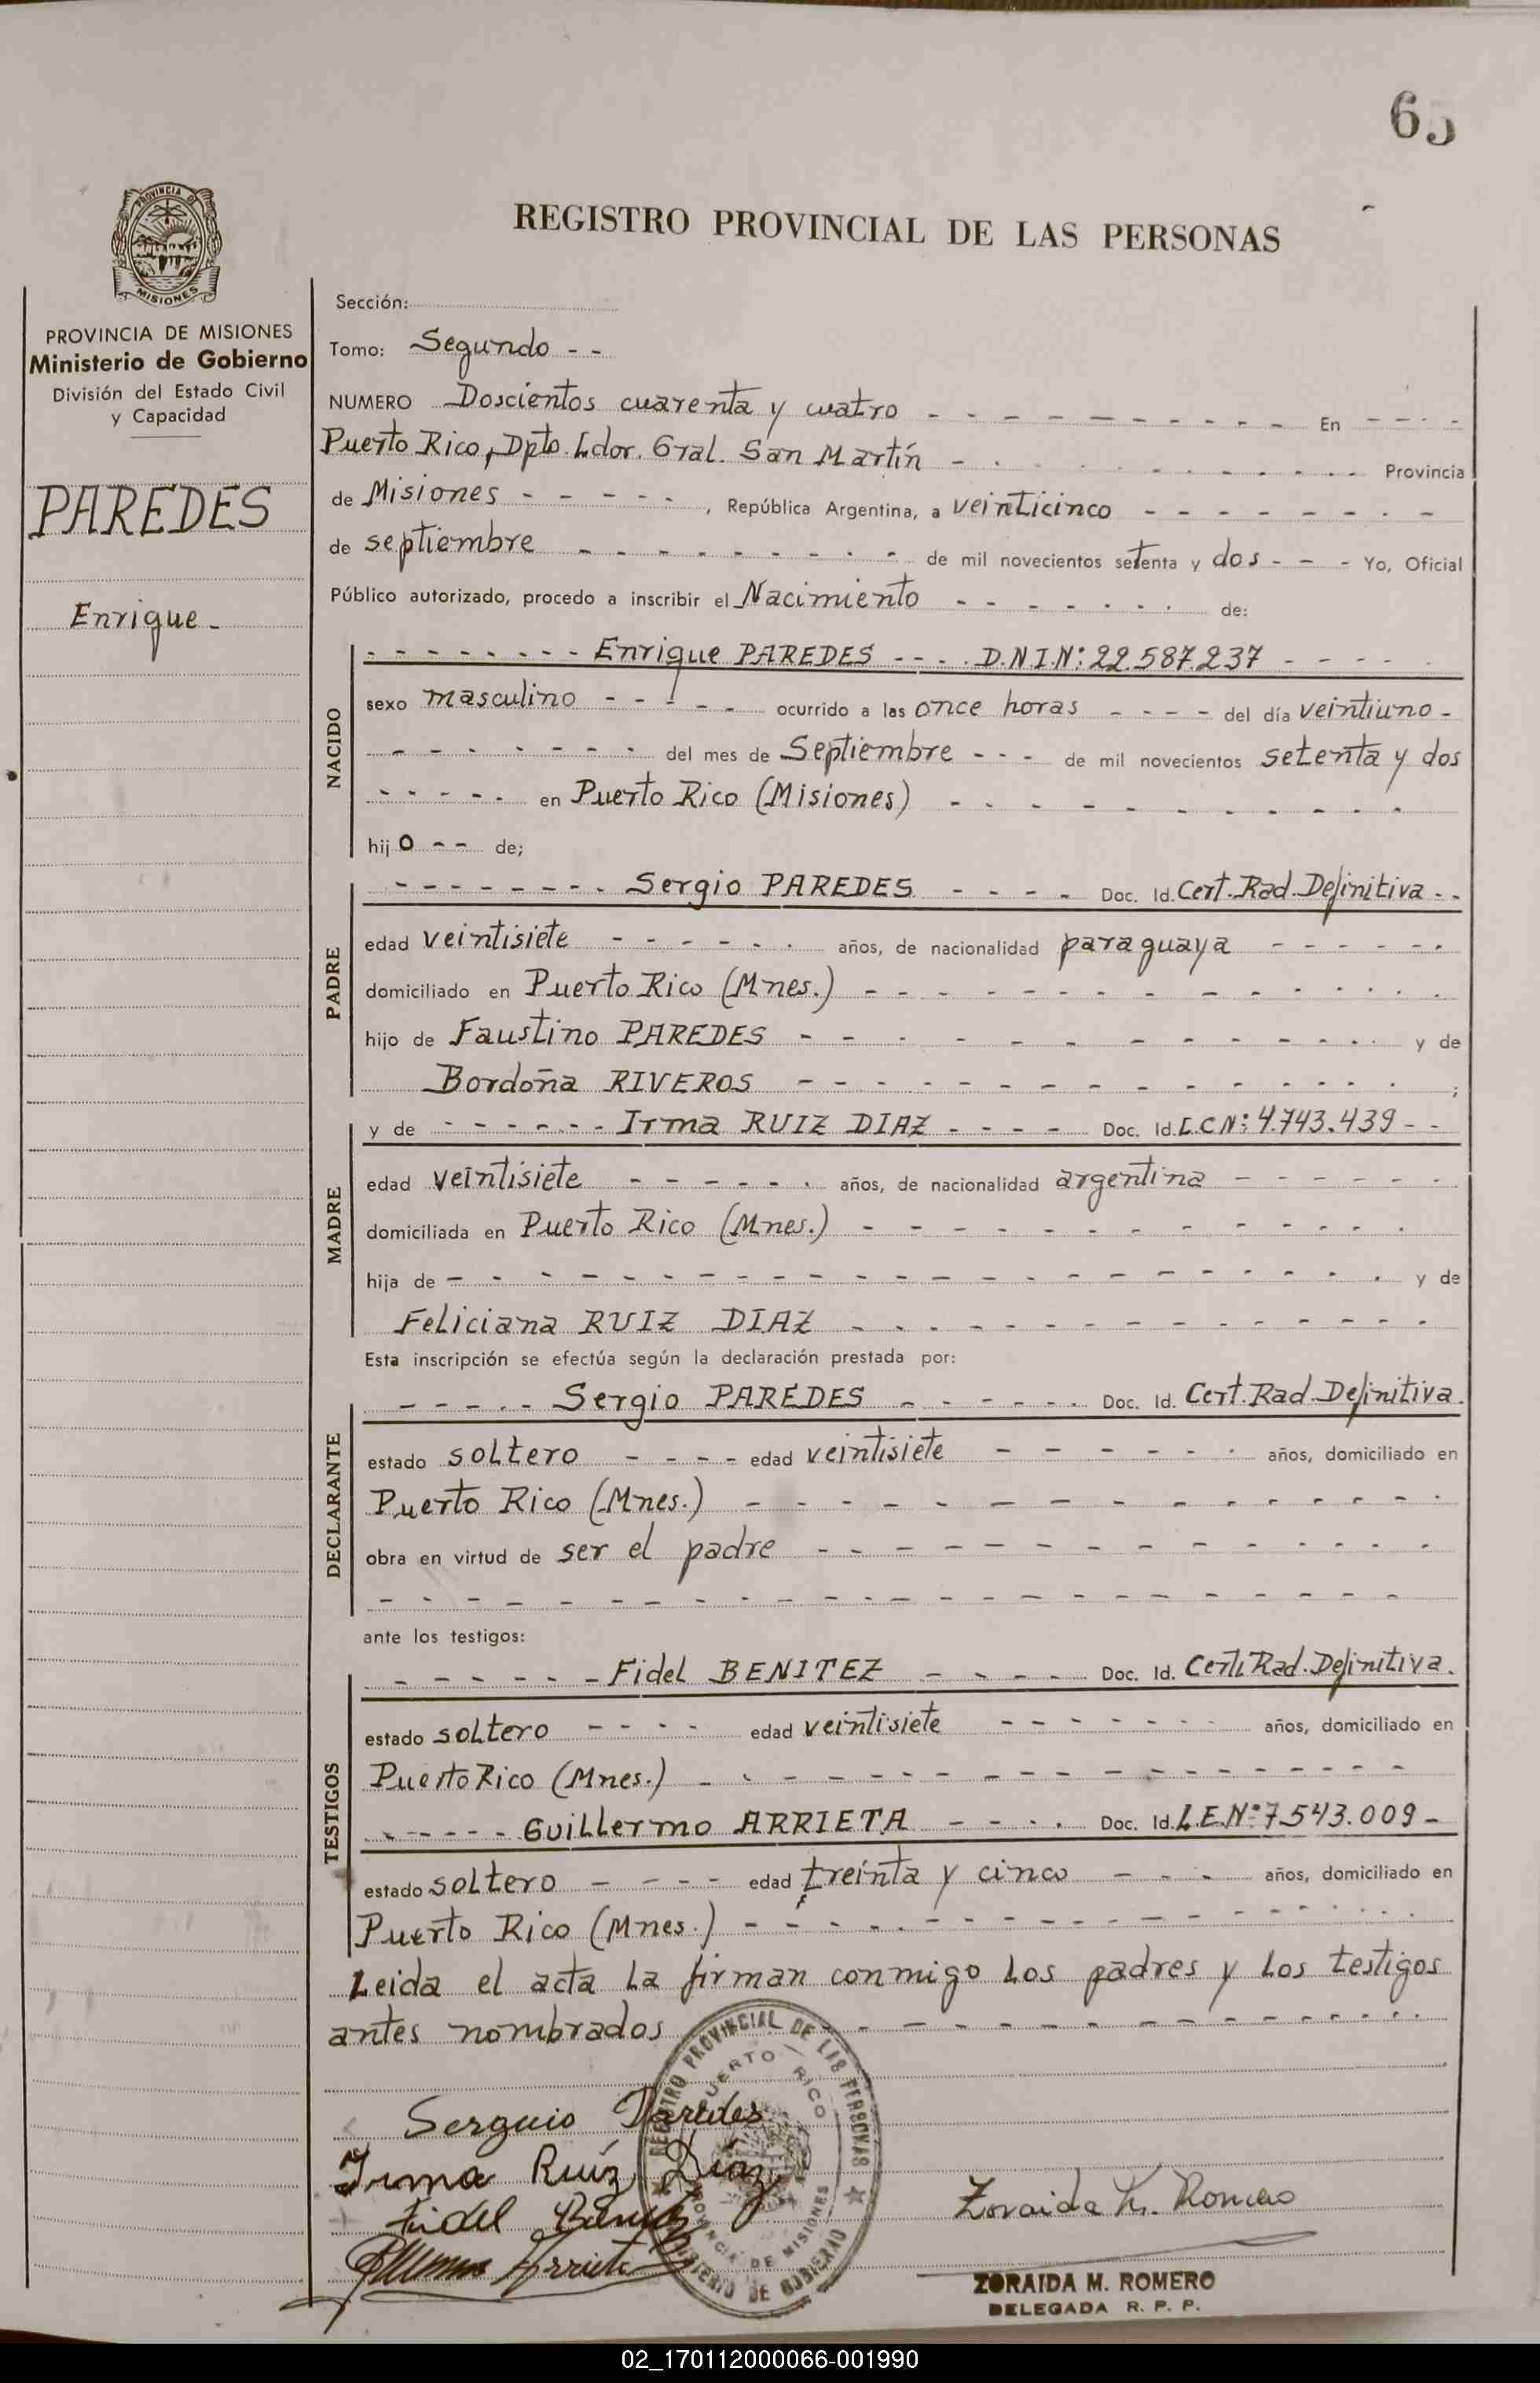 65
REGISTRO PROVINCIAL DE LAS PERSONAS
PROVINCIA DE MISIONES
Ministerio de Gobierno
División del Estado Civil
y Capacidad
PAREDES
Enrique
Sección:
Tomo: Segundo - -
NUMERO Doscientos cuarenta y cuatro - - - En - - -
Puerto Rico, Dpto. Ldor. Gral. San Martín - - - Provincia
de Misiones - - - , República Argentina, a veinticinco - - -
de septiembre - - - de mil novecientos setenta y dos - - - Yo, Oficial
Público autorizado, procedo a inscribir el Nacimiento - - - de:
NACIDO
- - - Enrique PAREDES - - - D.N.I.N: 22.587.237 - - -
sexo masculino - - - ocurrido a las once horas - - - del día veintiuno -
- - - del mes de Septiembre - - - de mil novecientos setenta y dos
- - - en Puerto Rico (Misiones) - - -
hijo - - de;
PADRE
- - - Sergio PAREDES - - - Doc. Id. Cert. Rad. Definitiva - -
edad veintisiete - - - años, de nacionalidad paraguaya - - -
domiciliado en Puerto Rico (Mnes.) - - -
hijo de Faustino PAREDES - - - y de
Bordoña RIVEROS - - - ;
MADRE
y de - - - Irma RUIZ DIAZ - - - Doc. Id. L.C.N: 4.743.439 - -
edad veintisiete - - - años, de nacionalidad argentina - - -
domiciliada en Puerto Rico (Mnes.) - - -
hija de - - - y de
Feliciana RUIZ DIAZ - - -
Esta inscripción se efectúa según la declaración prestada por:
DECLARANTE
- - - Sergio PAREDES - - - Doc. Id. Cert. Rad. Definitiva.
estado soltero - - - edad veintisiete - - - años, domiciliado en
Puerto Rico (Mnes.) - - -
obra en virtud de ser el padre - - -
ante los testigos:
TESTIGOS
- - - Fidel BENITEZ - - - Doc. Id. Cert. Rad. Definitiva.
estado soltero - - - edad veintisiete - - - años, domiciliado en
Puerto Rico (Mnes.) - - -
- - - Guillermo ARRIETA - - - Doc. Id. L.E.Nº 7.543.009 -
estado soltero - - - edad treinta y cinco - - - años, domiciliado en
Puerto Rico (Mnes.) - - -
Leida el acta la firman conmigo los padres y los testigos
antes nombrados - - -
REGISTRO PROVINCIAL DE LAS PERSONAS
PUERTO RICO
PROVINCIA DE MISIONES
MINISTERIO DE GOBIERNO
Serguio Paredes
Irma Ruíz Díaz
Fidel Benitez
Arrieta
Zoraida M. Romero
ZORAIDA M. ROMERO
DELEGADA R. P. P.
02_170112000066-001990